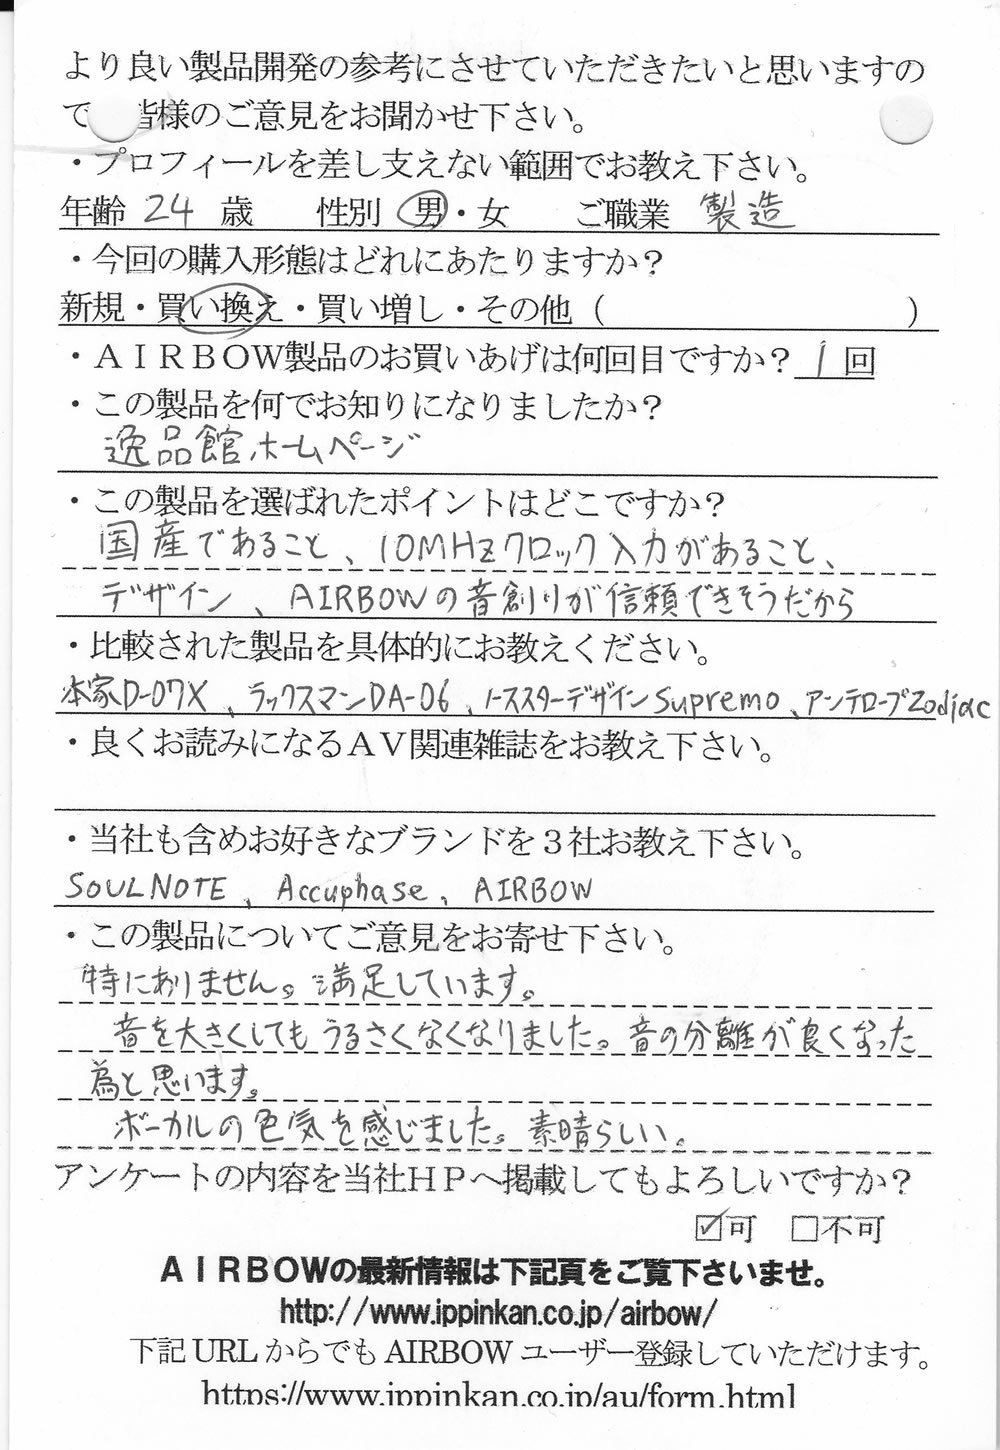 より良い製品開発の参考にさせていただきたいと思いますの
で 皆様のご意見をお聞かせ下さい。
・プロフィールを差し支えない範囲でお教え下さい。
年齢 24 歳 性別 男・女 ご職業 製造
・今回の購入形態はどれにあたりますか？
新規・買い換え・買い増し・その他（ ）
・ＡＩＲＢＯＷ製品のお買いあげは何回目ですか？ 1 回
・この製品を何でお知りになりましたか？
逸品館ホームページ
・この製品を選ばれたポイントはどこですか？
国産であること、10MHzクロック入力があること、
デザイン、AIRBOWの音創りが信頼できそうだから
・比較された製品を具体的にお教えください。
本家D-07X、ラックスマンDA-06、ノーススターデザインSupremo、アンテロープZodiac
・良くお読みになるＡＶ関連雑誌をお教え下さい。
・当社も含めお好きなブランドを３社お教え下さい。
SOULNOTE、Accuphase、AIRBOW
・この製品についてご意見をお寄せ下さい。
特にありません。満足しています。
音を大きくしてもうるさくなくなりました。音の分離が良くなった
為と思います。
ボーカルの色気を感じました。素晴らしい。
アンケートの内容を当社ＨＰへ掲載してもよろしいですか？
☑可 □不可
ＡＩＲＢＯＷの最新情報は下記頁をご覧下さいませ。
http://www.ippinkan.co.jp/airbow/
下記 URL からでも AIRBOW ユーザー登録していただけます。
https://www.ippinkan.co.jp/au/form.html